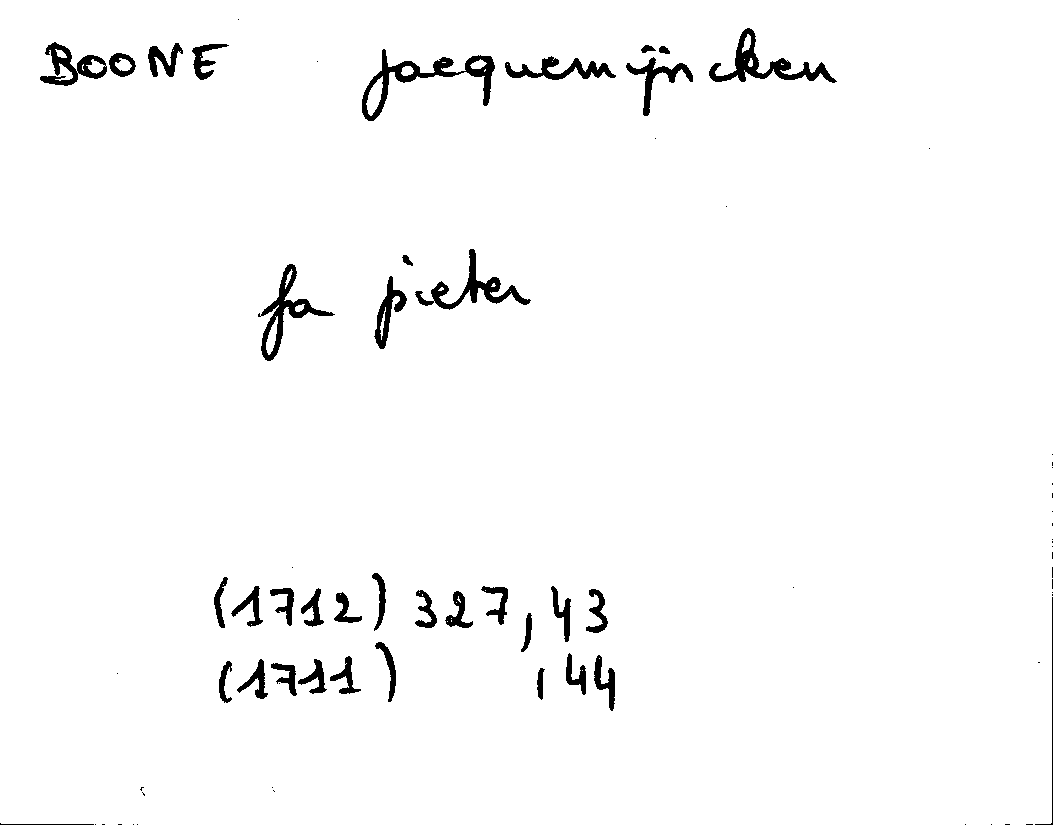 BOONE jacquemijncken
fa pieter
(1712) 327, 43
(1711) , 44